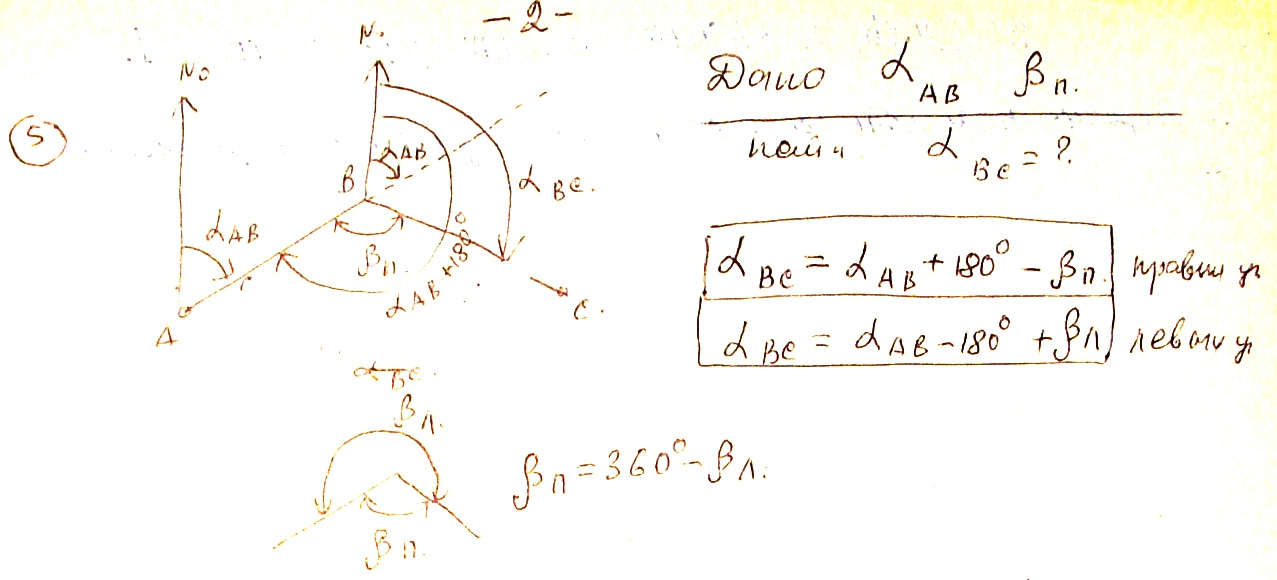 - 2 -
5
N₀
N₀
α AB
B
α AB
α BC.
β п.
α AB + 180°
A
C.
Дано α AB β п.
найти α BC = ?
α BC = α AB + 180° - β п. правый уг
α BC = α AB - 180° + β л левый у
α BC.
β л.
β п = 360° - β л.
β п.